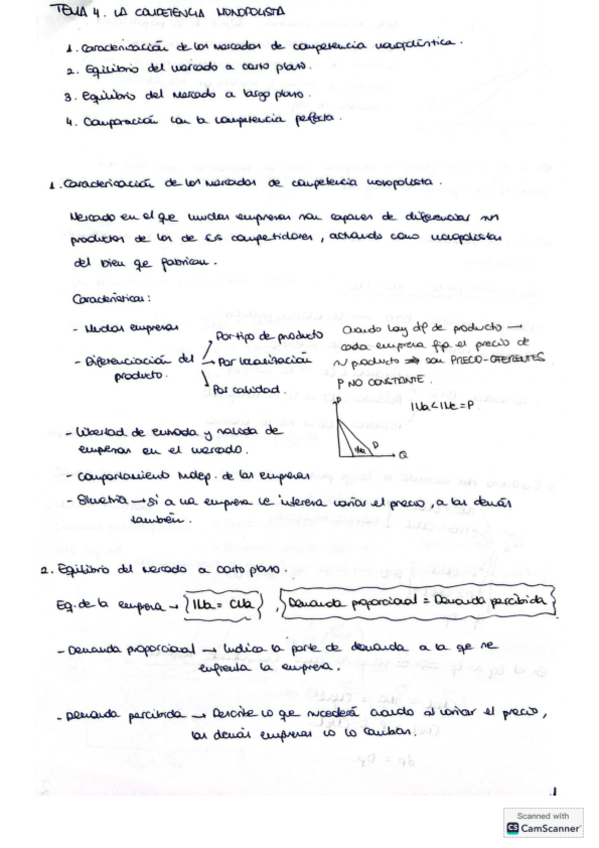 TEMA 4. LA COMPETENCIA MONOPOLISTA
1. Caracterización de los mercados de competencia monopolística.
2. Equilibrio del mercado a corto plazo.
3. Equilibrio del mercado a largo plazo.
4. Comparación con la competencia perfecta.
1. Caracterización de los mercados de competencia monopolista.
Mercado en el que muchas empresas son capaces de diferenciar sus
productos de los de los competidores, actuando como monopolistas
del bien que fabrican.
Características:
- Muchas empresas
- Diferenciación del producto.
Por tipo de producto
Por localización
Por calidad.
Cuando hay df de producto →
cada empresa fija el precio de
su producto ⇒ son PRECIO-OFERENTES
P NO CONSTANTE.
P
IMa < IMe = P
D
IMa
Q
- Libertad de entrada y salida de
empresas en el mercado.
- Comportamiento indep. de las empresas
- Simetría → si a una empresa le interesa variar el precio, a las demás
también.
2. Equilibrio del mercado a corto plazo.
Eq. de la empresa → IMa = CMa , Demanda proporcional = Demanda percibida
- Demanda proporcional → Indica la parte de demanda a la que se
enfrenta la empresa.
- Demanda percibida → Describe lo que sucederá cuando al variar el precio,
las demás empresas no lo cambian.
1
Scanned with
CS CamScanner